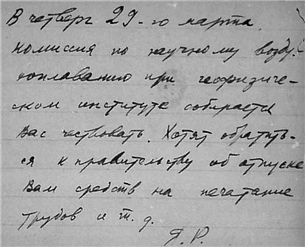 В четверг 29-го марта
комиссия по научному возду-
хоплаванию при геофизиче-
ском институте собирается
Вас чествовать. Хотят обратить-
ся к правительству об отпуске
Вам средств на печатание
трудов и т. д.
Я. Р.